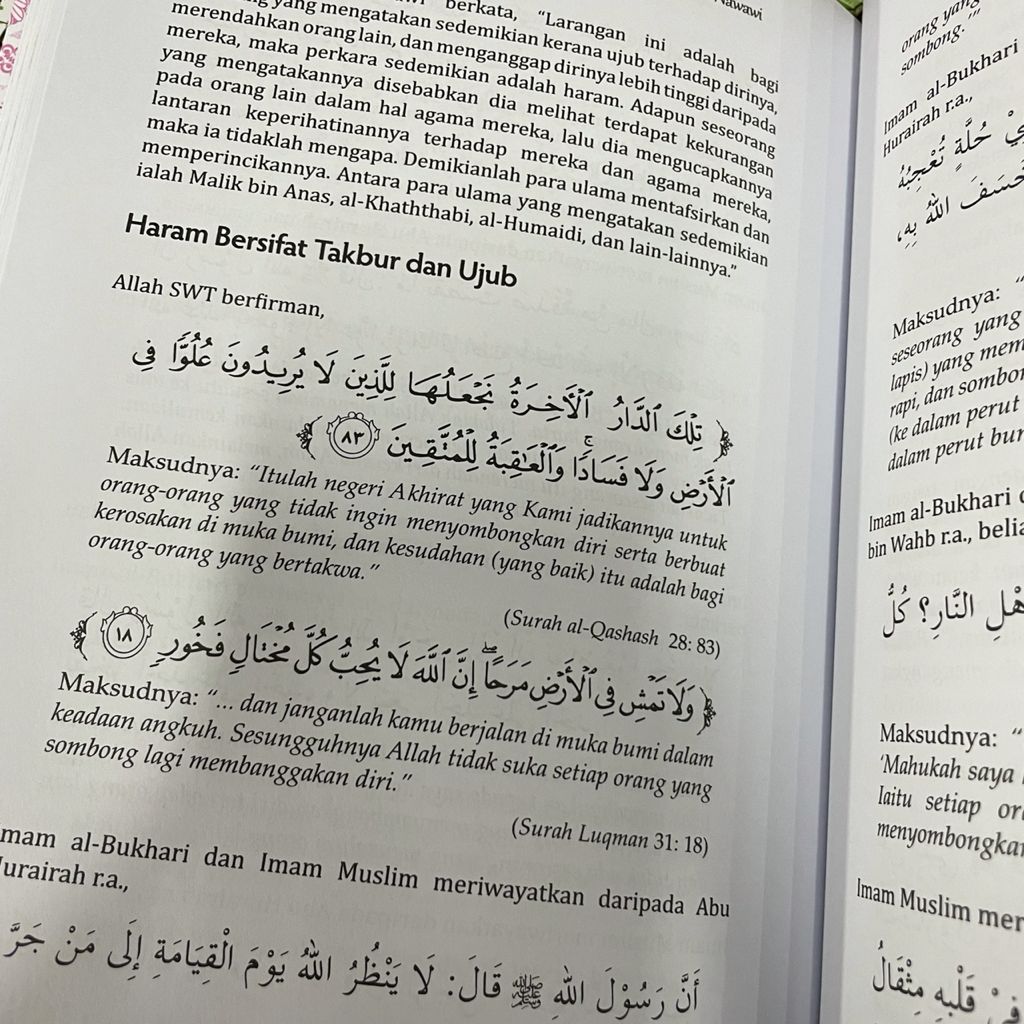 Nawawi
berkata, "Larangan ini adalah bagi
yang mengatakan sedemikian kerana ujub terhadap dirinya,
merendahkan orang lain, dan menganggap dirinya lebih tinggi daripada
mereka, maka perkara sedemikian adalah haram. Adapun seseorang
yang mengatakannya disebabkan dia melihat terdapat kekurangan
pada orang lain dalam hal agama mereka, lalu dia mengucapkannya
lantaran keperihatinannya terhadap mereka dan agama mereka,
maka ia tidaklah mengapa. Demikianlah para ulama mentafsirkan dan
memperincikannya. Antara para ulama yang mengatakan sedemikian
ialah Malik bin Anas, al-Khaththabi, al-Humaidi, dan lain-lainnya."
Haram Bersifat Takbur dan Ujub
Allah SWT berfirman,
﴿ تِلْكَ ٱلدَّارُ ٱلْأَخِرَةُ نَجْعَلُهَا لِلَّذِينَ لَا يُرِيدُونَ عُلُوًّا فِى
ٱلْأَرْضِ وَلَا فَسَادًا ۚ وَٱلْعَـٰقِبَةُ لِلْمُتَّقِينَ ٨٣ ﴾
Maksudnya: "Itulah negeri Akhirat yang Kami jadikannya untuk
orang-orang yang tidak ingin menyombongkan diri serta berbuat
kerosakan di muka bumi, dan kesudahan (yang baik) itu adalah bagi
orang-orang yang bertakwa."
(Surah al-Qashash 28: 83)
﴿ وَلَا تَمْشِ فِى ٱلْأَرْضِ مَرَحًا ۖ إِنَّ ٱللَّهَ لَا يُحِبُّ كُلَّ مُخْتَالٍ فَخُورٍ ١٨ ﴾
Maksudnya: "... dan janganlah kamu berjalan di muka bumi dalam
keadaan angkuh. Sesungguhnya Allah tidak suka setiap orang yang
sombong lagi membanggakan diri."
(Surah Luqman 31: 18)
mam al-Bukhari dan Imam Muslim meriwayatkan daripada Abu
urairah r.a.,
أَنَّ رَسُوْلَ اللهِ ﷺ قَالَ: لَا يَنْظُرُ اللهُ يَوْمَ الْقِيَامَةِ إِلَى مَنْ جَرَّ
orang yang
sombong.'"
Imam al-Bukhari
Hurairah r.a.,
حُلَّةٍ تُعْجِبُهُ
خَسَفَ اللهُ بِهِ،
Maksudnya: "
seseorang yang
lapis) yang mem
rapi, dan sombo
(ke dalam perut
dalam perut bu
Imam al-Bukhari
bin Wahb r.a., belia
هْلِ النَّارِ؟ كُلُّ
Maksudnya: "
'Mahukah saya
laitu setiap or
menyombongka
Imam Muslim mer
قَلْبِهِ مِثْقَالُ